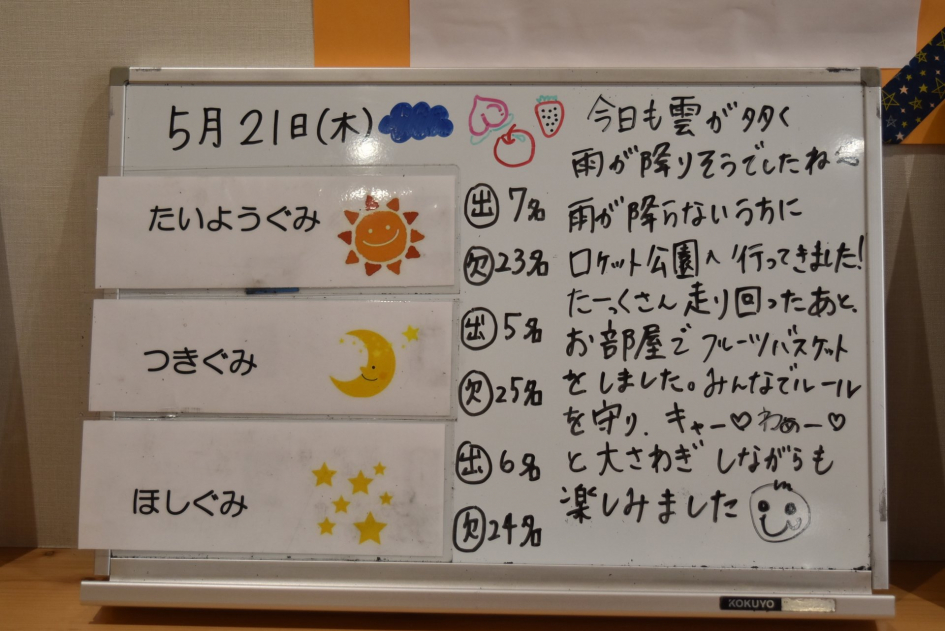 5月21日(木)
たいようぐみ
出 7名
欠 23名
つきぐみ
出 5名
欠 25名
ほしぐみ
出 6名
欠 24名
今日も雲が多く
雨が降りそうでしたね〜
雨が降らないうちに
ロケット公園へ行ってきました!
たーっくさん走り回ったあと、
お部屋でフルーツバスケット
をしました。みんなでルール
を守り、キャー♡わぁー♡
と大さわぎしながらも
楽しみました
KOKUYO